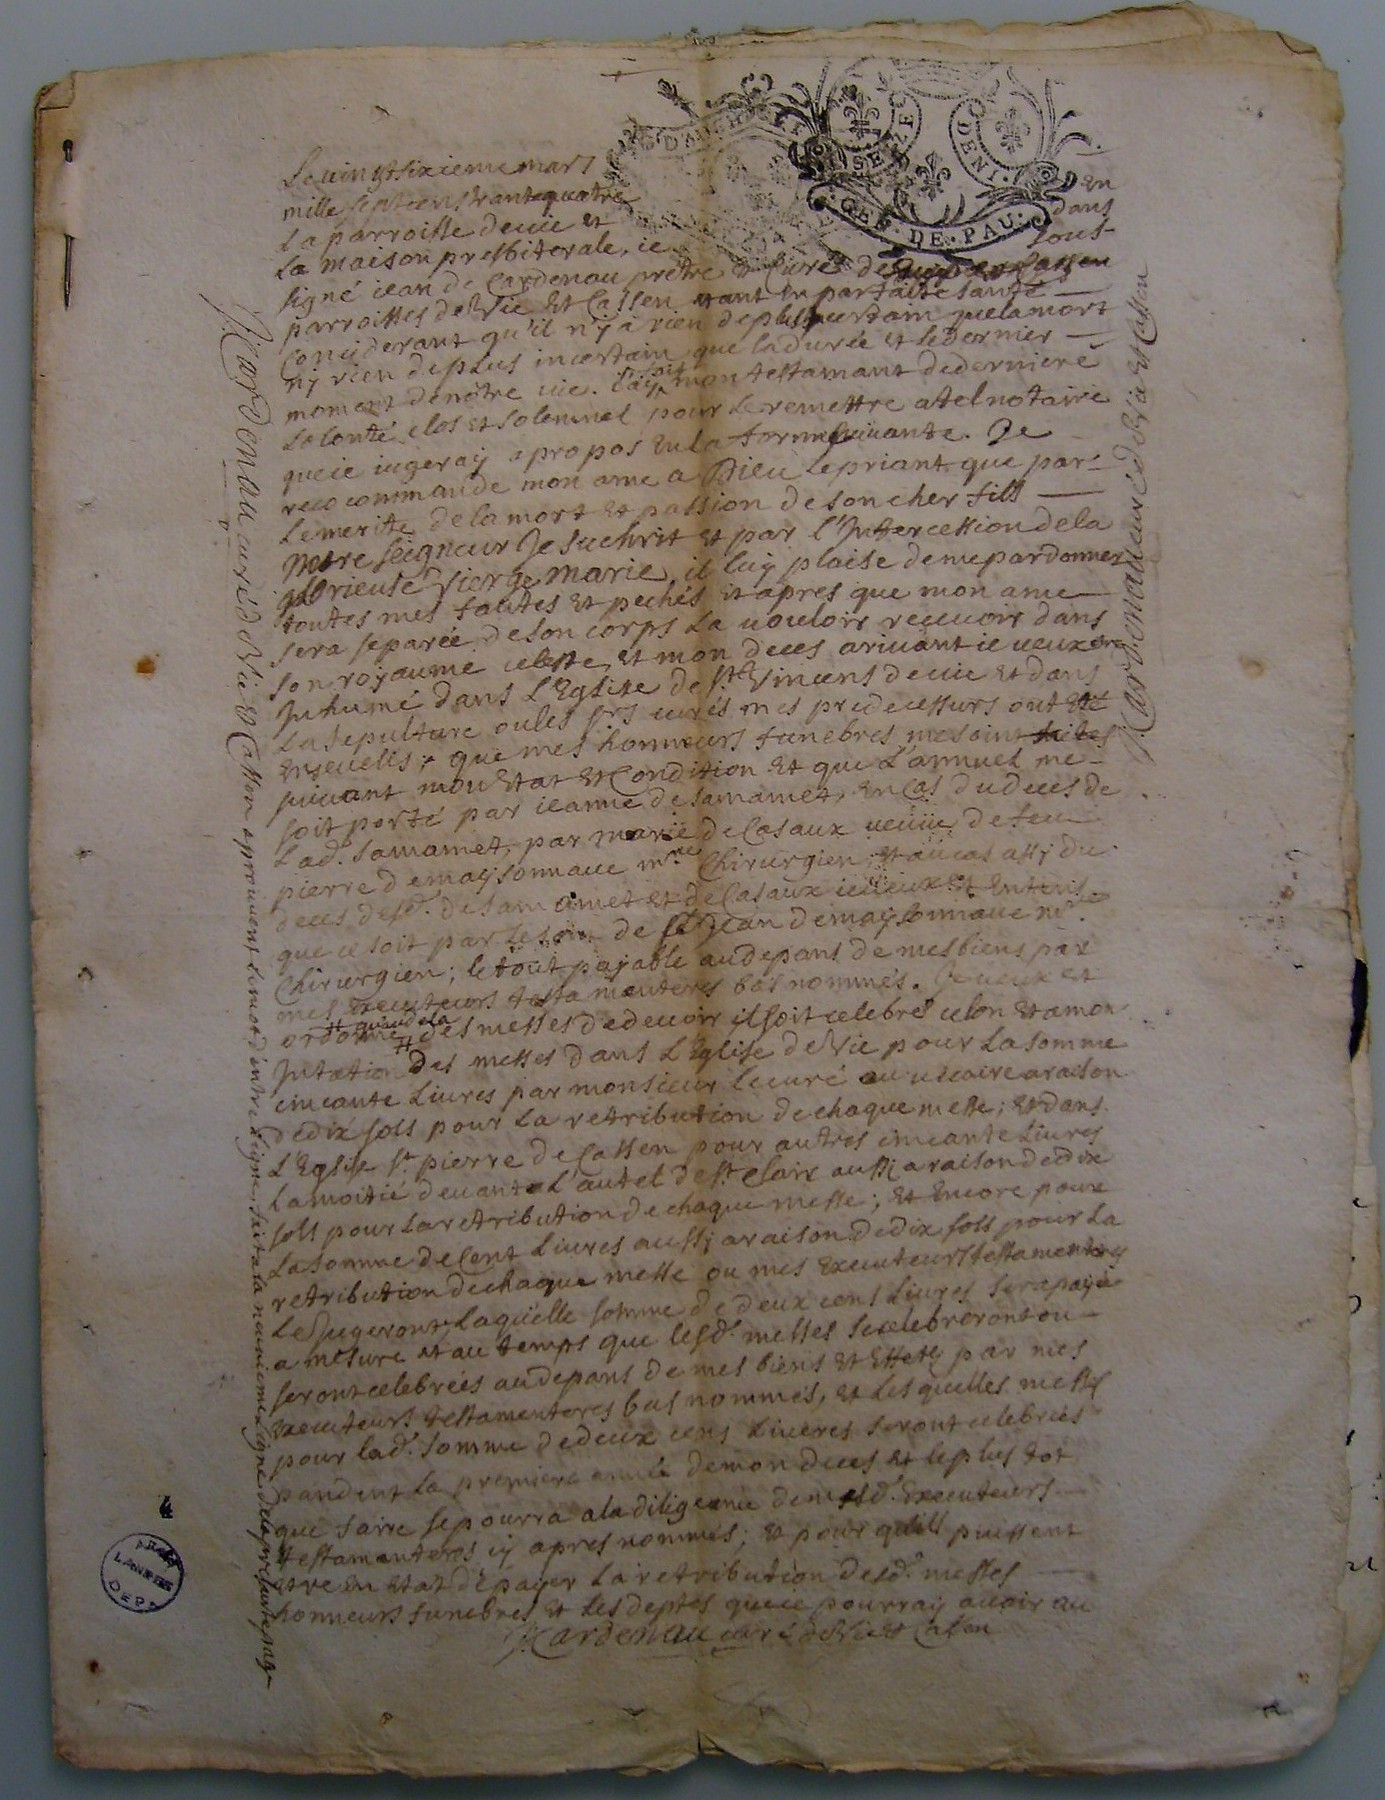 D'AUCH ET
SEIZE
DENI.
GEN. DE. PAU.
Le vingt sixieme mars
mille sept cens trante quatre En
La parroisse de vic et dans
La maison presbiterale, ie sous-
signé iean de Cardenau prêtre et Curé des
parroisses de Vic et Cassen etant en parfaite santé
Conciderant qu'il n'y a rien de plus certain que la mort
ny rien de plus incertain que la durée et le dernier
moment de nôtre vie. i'ay fait mon testamant de derniere
volonté clos et solemnel pour le remettre a tel notaire
que ie iugeray a propos en la forme suivante. Je
recocommande mon ame a Dieu le priant que par
le merite de la mort et passion de son cher fils
Notre seigneur Jesuchrit et par l'Intercession de la
glorieuse Vierge Marie, il luy plaise de me pardonner
toutes mes fautes et pechés et apres que mon ame
sera separée de son corps la vouloir recevoir dans
son royaume celeste et mon deces arivant ie veux etre
Inhumé dans L'Eglise de St Vincens de vic et dans
La sepulture ou les srs curés mes predecessurs ont eté
ensevelis; que mes honneurs funebres me soint faites
suivant mon etat et Condition et que L'annuel me
soit porté par ieanne de samamet, en Cas du deces de
Lad. samamet, par marie de Casaux veuüe de feu
pierre demaysonnave mre Chirurgien, et au cas assy du
deces desd. de samamet et de Casaux ie veux et entens
que ce soit par de Sr Jean demaysonnave mre
Chirurgien; le tout payable au depans de mes biens par
mes Executeurs testamanteres bas nommés. Je veux et
ordonne # qu'au dela # des messes de devoir il soit celebré selon et a mon
Intation des messes dans L'Eglise de Vic pour La somme
cincante Livres par monsieur le curé ou vicaire a raison
de dix sols pour La retribution de chaque messe; et dans
L'Eglise St pierre de Cassen pour autres cincante Livres
La moitié devant L'autel de St Clair aussi a raison de dix
sols pour La retribution de chaque messe; et encore pour
La somme de Cent Livres aussi a raison de dix sols pour La
retribution de chaque messe ou mes executeurs testamenteres
Le Jugeront. Laquelle somme de deux cens Livres sera payée
a mesure et au temps que lesd. messes se celebreront ou
seront celebrées au depans de mes biens et effets par mes
executeurs testamenteres bas nommés, et Lesquelles messes
pour lad. somme de deux cens Liveres seront celebrées
pandent La premiere année de mon deces et le plus tot
que faire se pourra a la diligence de mesd. Executeurs
testamanteres cy apres nommés; et pour qu'ils puissent
etre en etat de payer La retribution desd. messes
honneurs funebres et Les deptes que ie pourray avoir au
J. Cardenau curé de Vic et Cassen
J. Cardenau curé de Vic et Cassen aprouvent le mot d'entre Ligne fait a la neuvieme Ligne de la presente page
J. Cardenau curé de Vic et Cassen
4
ARCH.
LANDES
DEP.